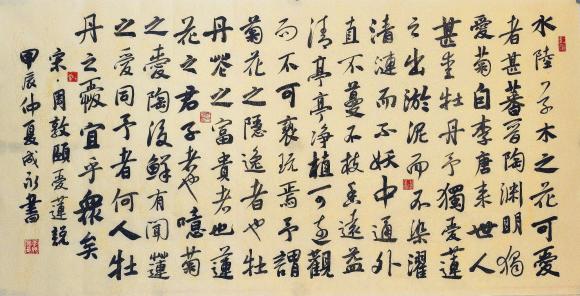 水陸草木之花可愛
者甚蕃晉陶淵明獨
愛菊自李唐来世人
甚愛牡丹予獨愛蓮
之出淤泥而不染濯
清漣而不妖中通外
直不蔓不枝香遠益
清亭亭净植可遠觀
而不可褻玩焉予謂
菊花之隱逸者也牡
丹花之富貴者也蓮
花之君子者也噫菊
之愛陶後鮮有聞蓮
之愛同予者何人牡
丹之愛宜乎衆矣
宋周敦頤愛蓮説
甲辰仲夏成永書